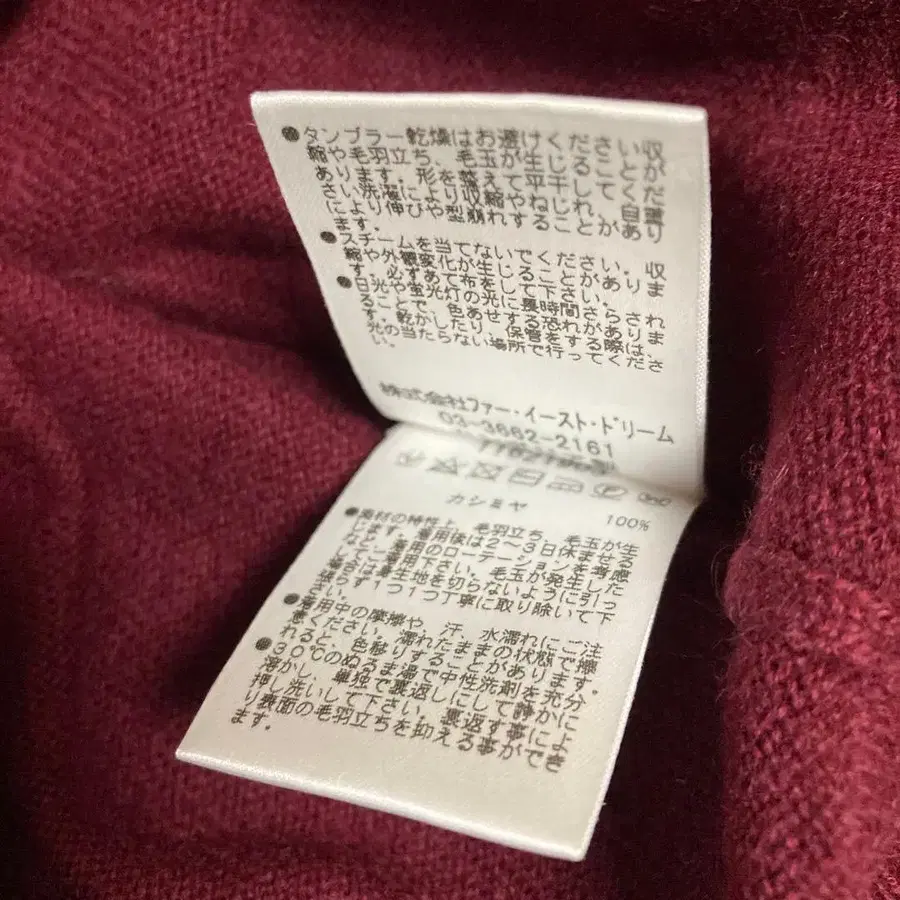 ●タンブラー乾燥はお避けください収
縮や毛羽立ち、毛玉が生じることが
あります。形を整えて平干してくだ
さい洗濯により収縮やねじれ、自重
により伸びや型崩れすることがあり
ます。
●スチームを当てないでください。収
縮や外観変化が生じることがありま
す。必ずあて布をして下さい。
●日光や蛍光灯の光に長時間さらされ
ることで、色あせする恐れがありま
す。乾かしたり、保管をする際は、
光の当たらない場所で行ってくださ
い。
株式会社ファー・イースト・ドリーム
03-3662-2161
カシミヤ 100%
●素材の特性上、毛羽立ち、毛玉が生
じます。着用後は2〜3日休ませる
など、着用のローテーションを考慮
してご着用下さい。毛玉が発生した
場合は、生地を切らないように引っ
張らず1つ1つ丁寧に取り除いて下
さい。
●着用中の摩擦や、汗、水濡れにご注
意ください。濡れたままの状態で擦
れると、色移りすることがあります。
●30℃のぬるま湯で中性洗剤を充分
溶かし、単独で裏返しにして静かに
押し洗いして下さい。裏返す事によ
り表面の毛羽立ちを抑える事ができ
ます。